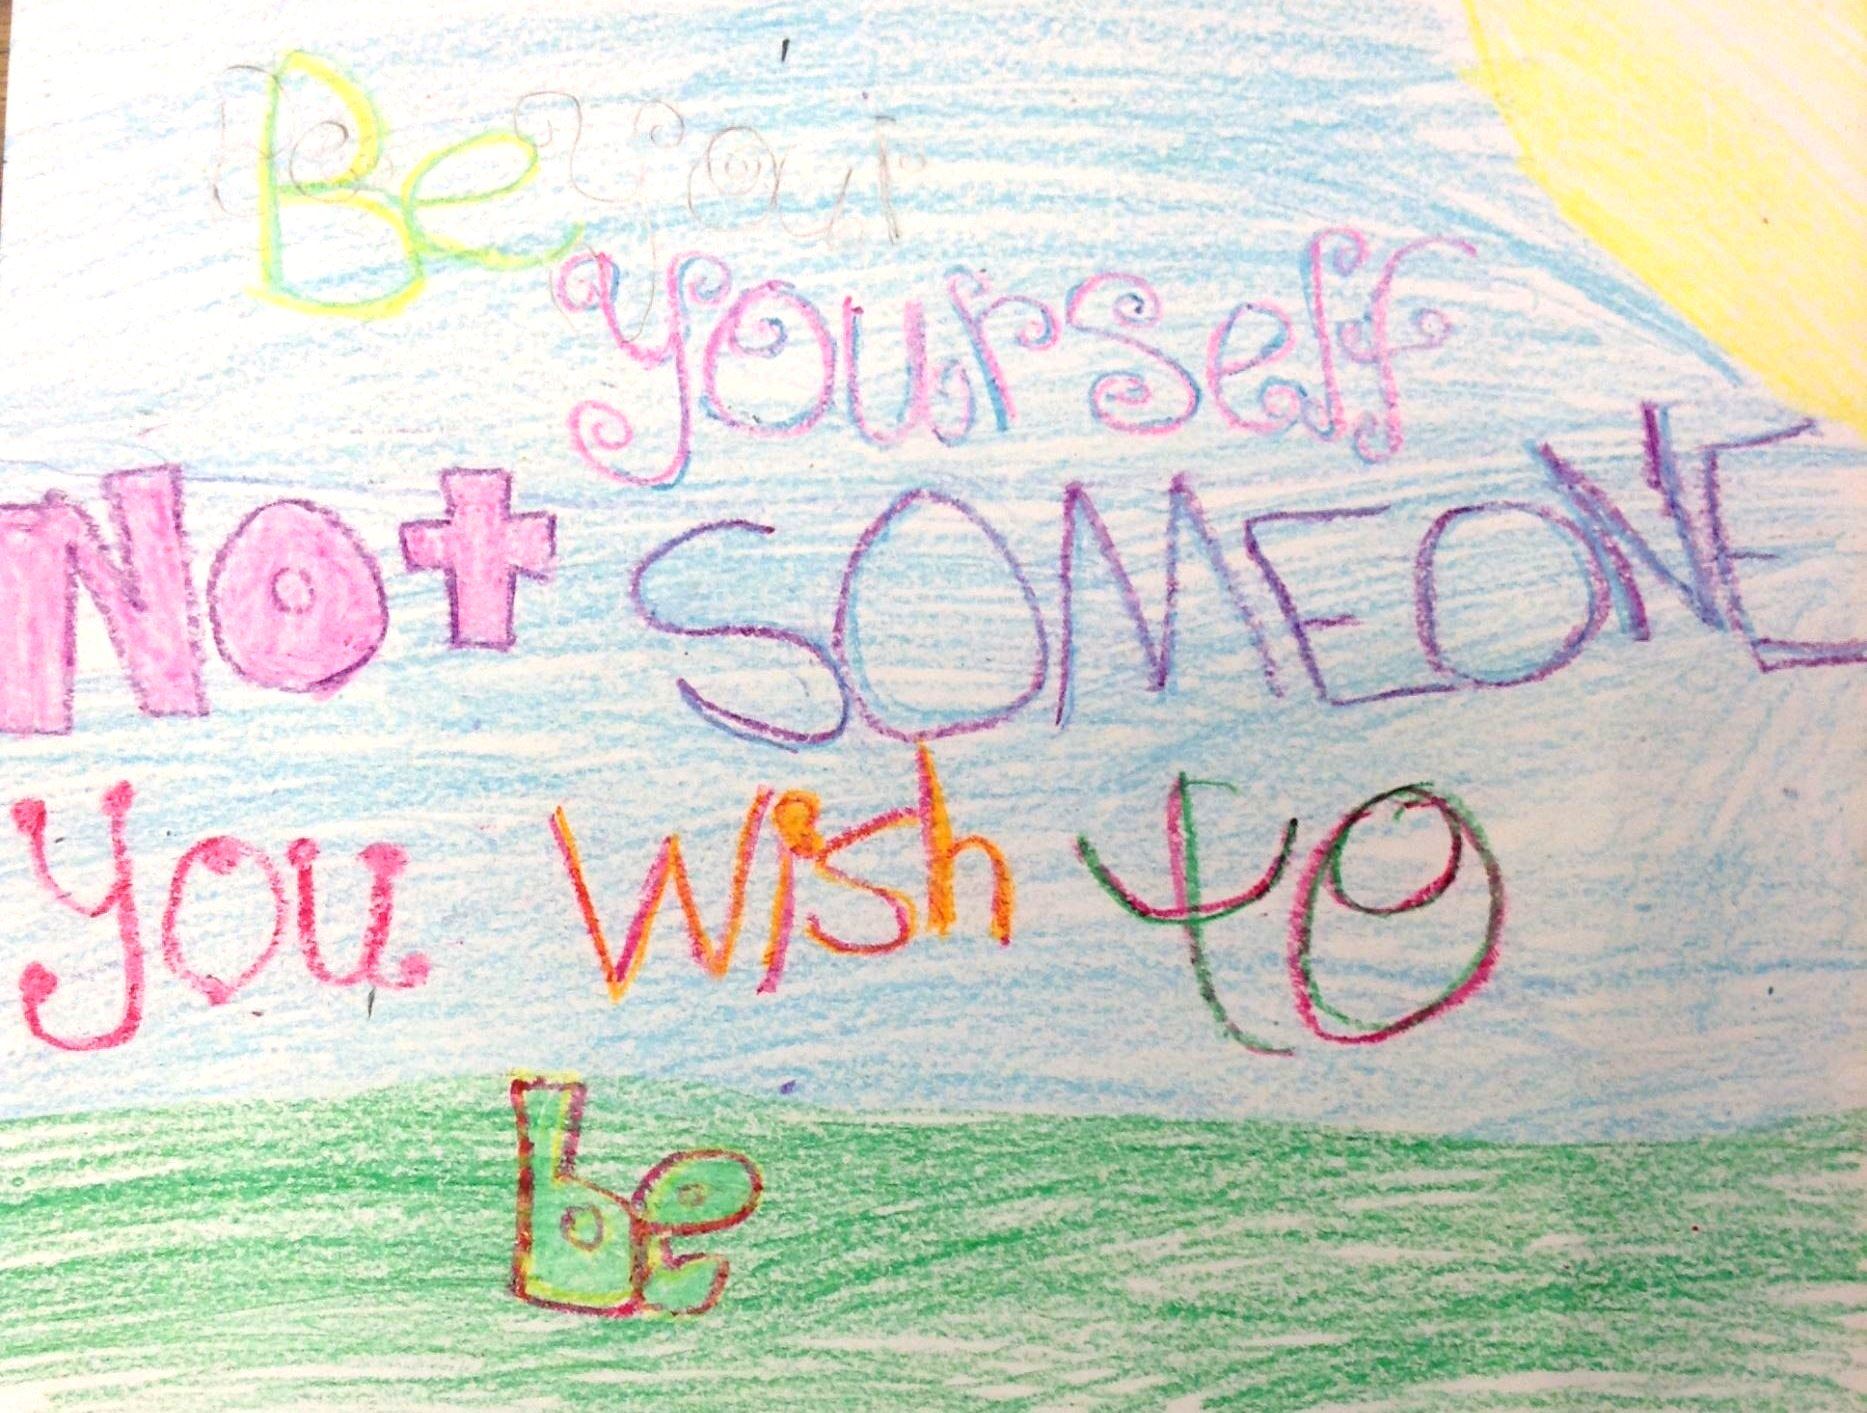 Be
yourself
Not SOMEONE
you wish to
be